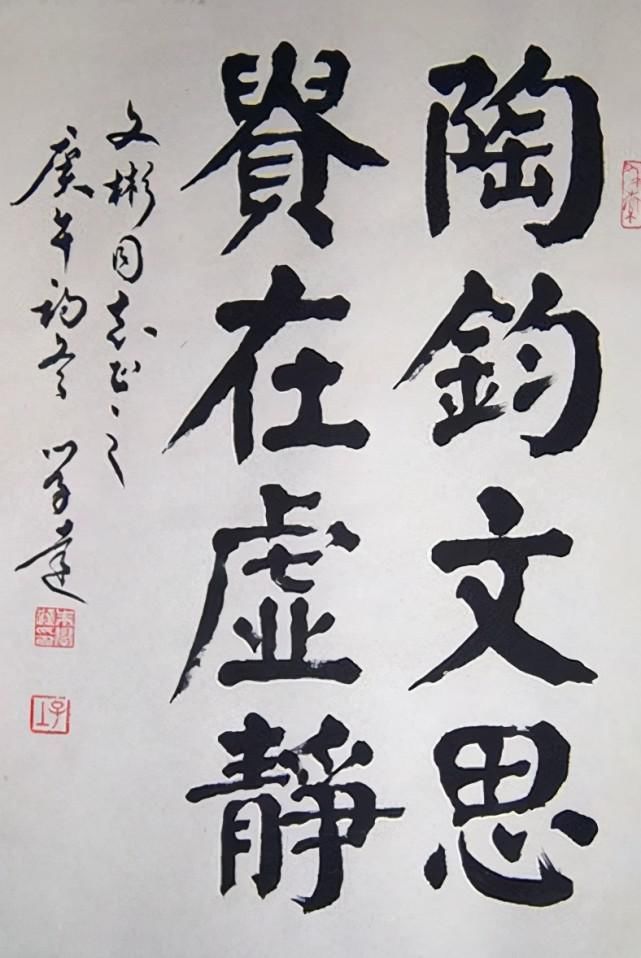 陶鈞文思
貴在虚靜
文彬同志正之
庚午初冬 學達